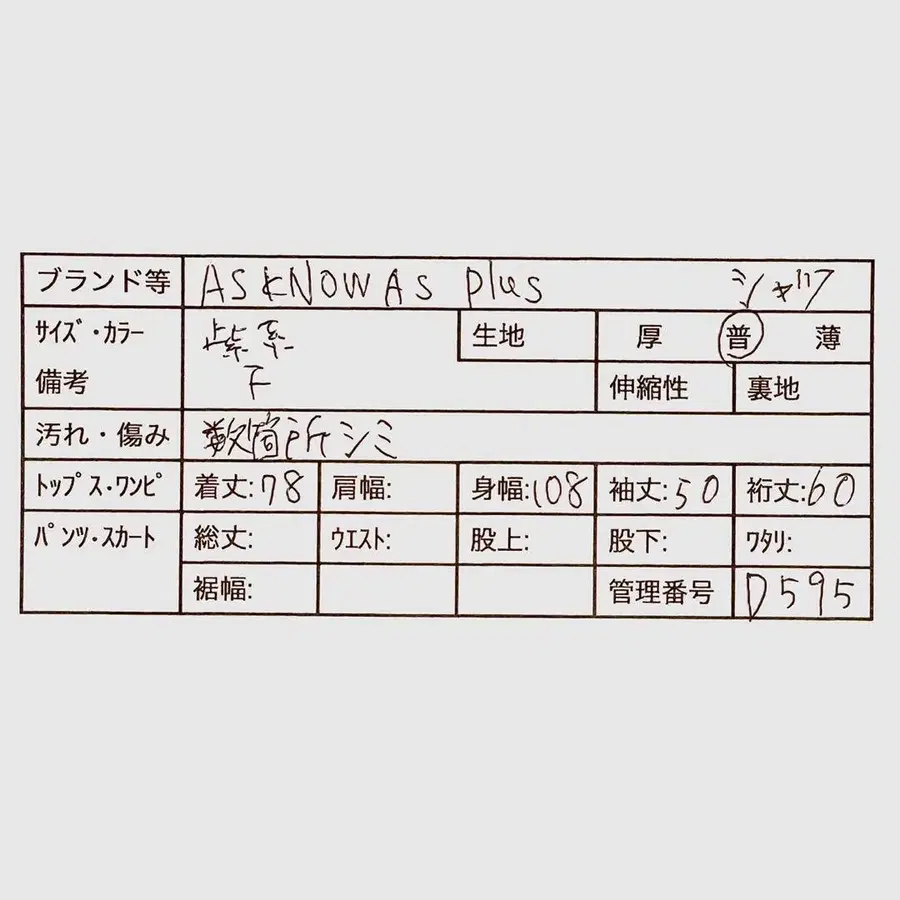 ブランド等 ASKNOWAS plus シャツ
サイズ・カラー 紫系 生地 厚 普 薄
備考 F 伸縮性 裏地
汚れ・傷み 数箇所シミ
トップス・ワンピ 着丈:78 肩幅: 身幅:108 袖丈:50 裄丈:60
パンツ・スカート 総丈: ウエスト: 股上: 股下: ワタリ:
裾幅: 管理番号 D595